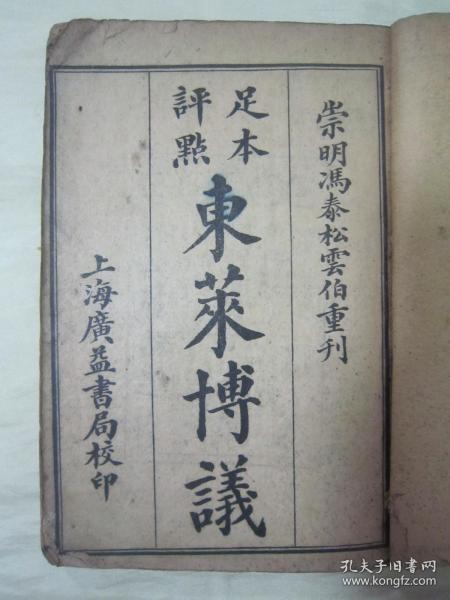 崇明馮泰松雲伯重刊
足本
評點
東萊博議
上海廣益書局校印
孔夫子旧书网
www.kongfz.com